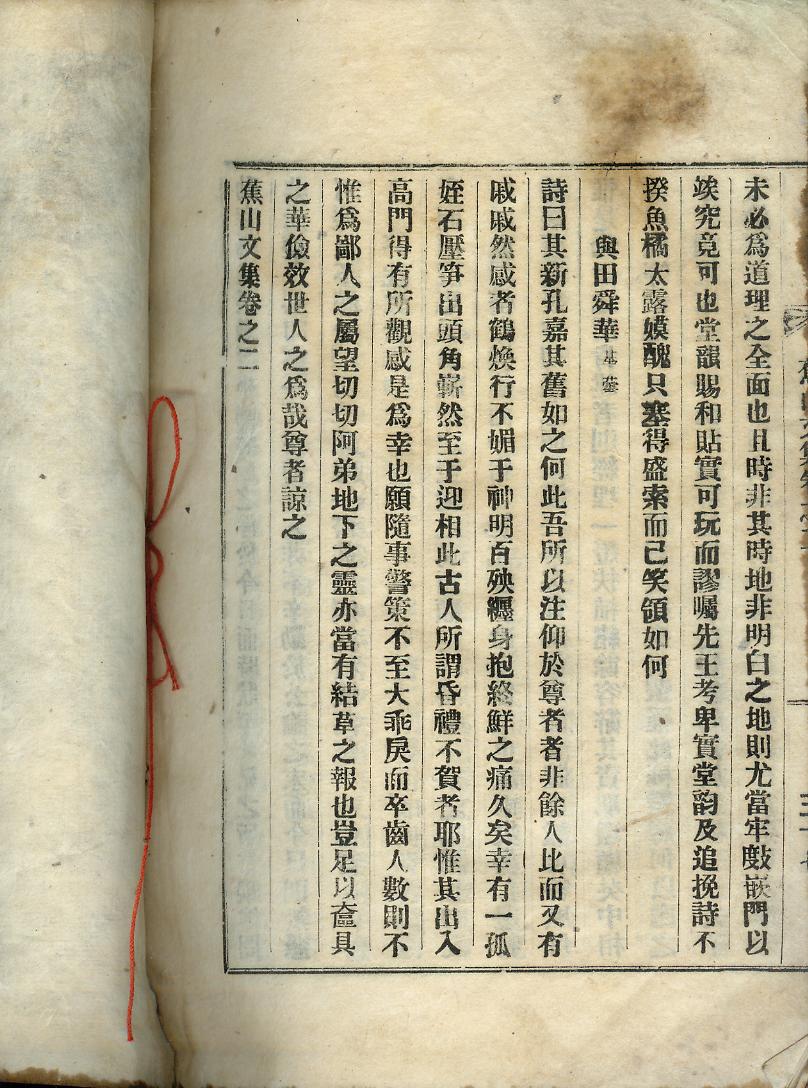 未必爲道理之全面也且時非其時地非明白之地則尤當牢㪉嵌門以
竢究竟可也堂韻賜和貼實可玩而謬囑先王考卑實堂韵及追挽詩不
揆魚橘太露嫫醜只塞得盛索而已笑領如何
與田舜華
詩曰其新孔嘉其舊如之何此吾所以注仰於尊者者非餘人比而又有
戚戚然感者鶴煥行不媚于神明百殃纏身抱終鮮之痛久矣幸有一孤
姪石壓笋出頭角嶄然至于迎相此古人所謂昏禮不賀者耶惟其出入
高門得有所觀感是爲幸也願隨事警策不至大乖戾而卒齒人數則不
惟爲鄙人之屬望切切阿弟地下之靈亦當有結草之報也豈足以奩具
之華儉效世人之爲哉尊者諒之
蕉山文集卷之二